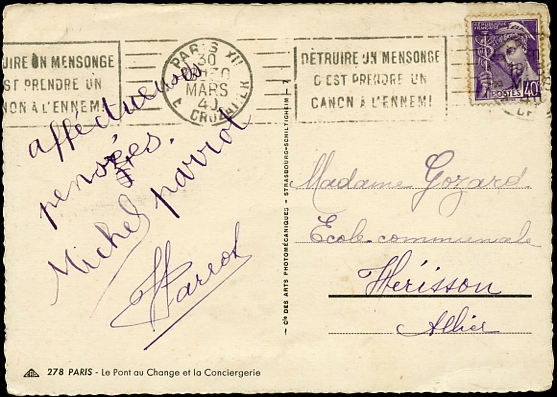 UIRE UN MENSONGE
EST PRENDRE UN
NON À L'ENNEMI
PARIS XII
30
MARS
40
DÉTRUIRE UN MENSONGE
C'EST PRENDRE UN
CANON À L'ENNEMI
POSTES
40c
affectueuses
pensées.
Michel parrot
Parrot
Madame Gozard
École communale
Hérisson
Allier
Cie DES ARTS PHOTOMÉCANIQUES - STRASBOURG-SCHILTIGHEIM - 7
278 PARIS - Le Pont au Change et la Conciergerie